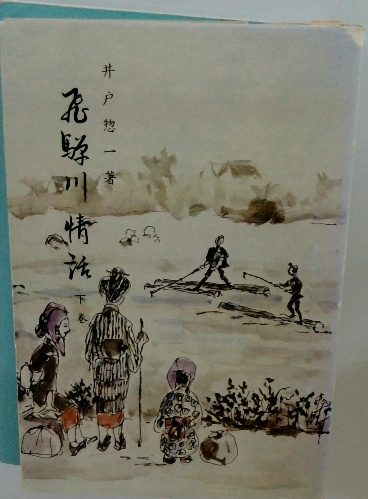 井戸惣一著
飛騨川情話
下巻